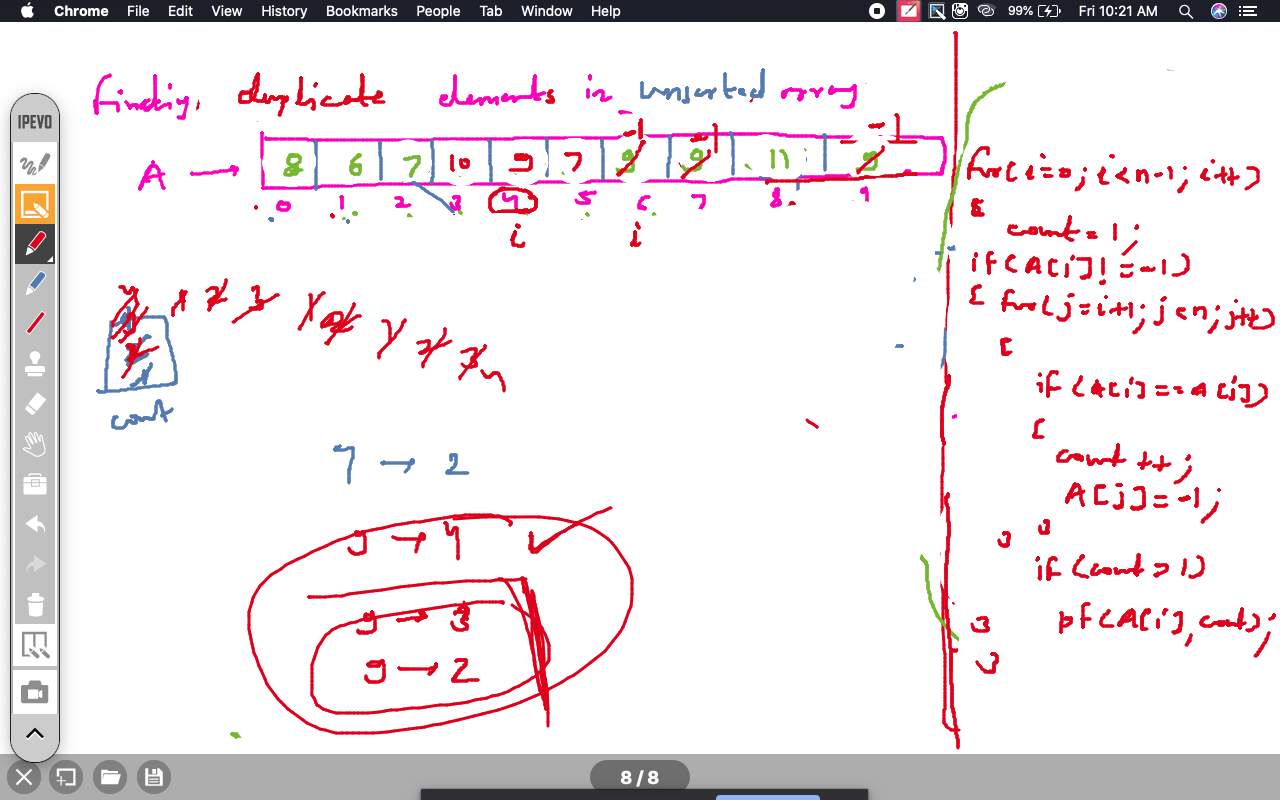 Chrome File Edit View History Bookmarks People Tab Window Help 99% Fri 10:21 AM
IPEVO
finding duplicate elements in unsorted array
-1 -1 -1
A → 8 6 7 10 9 7 9 9 11 9
0 1 2 3 4 5 6 7 8 9
i i
4 1 2 3 1 2 1 2 3 4
count
7 → 2
9 → 4
9 → 3
9 → 2
for(i=0; i<n-1; i++)
{
count = 1;
if(A[i]!=-1)
{ for(j=i+1; j<n; j++)
{
if(A[i]==A[j])
{
count++;
A[j]=-1;
} }
if(count>1)
} pf(A[i], count);
}
8 / 8